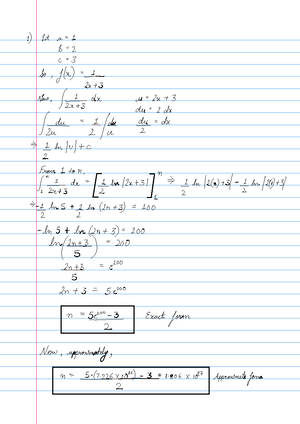 1) Let a = 1
b = 2
c = 3
So, f(x) = 1/(2x+3)
Now, ∫ 1/(2x+3) dx u = 2x + 3
du = 2 dx
∫ du/2u = 1/2 ∫ du/u du/2 = dx
⇒ 1/2 ln |u| + c
From 1 to n,
∫₁ⁿ 1/(2x+3) dx = [1/2 ln |2x+3|]₁ⁿ ⇒ 1/2 ln |2(n)+3| - 1/2 ln |2(1)+3|
⇒ -1/2 ln 5 + 1/2 ln (2n+3) = 100
-ln 5 + ln (2n+3) = 200
ln((2n+3)/5) = 200
(2n+3)/5 = e²⁰⁰
2n + 3 = 5e²⁰⁰
n = (5e²⁰⁰ - 3)/2 Exact form
Now, approximately,
n = (5·(7.226 × 10⁸⁶) - 3)/2 = 1.806 × 10⁸⁷ Approximate form